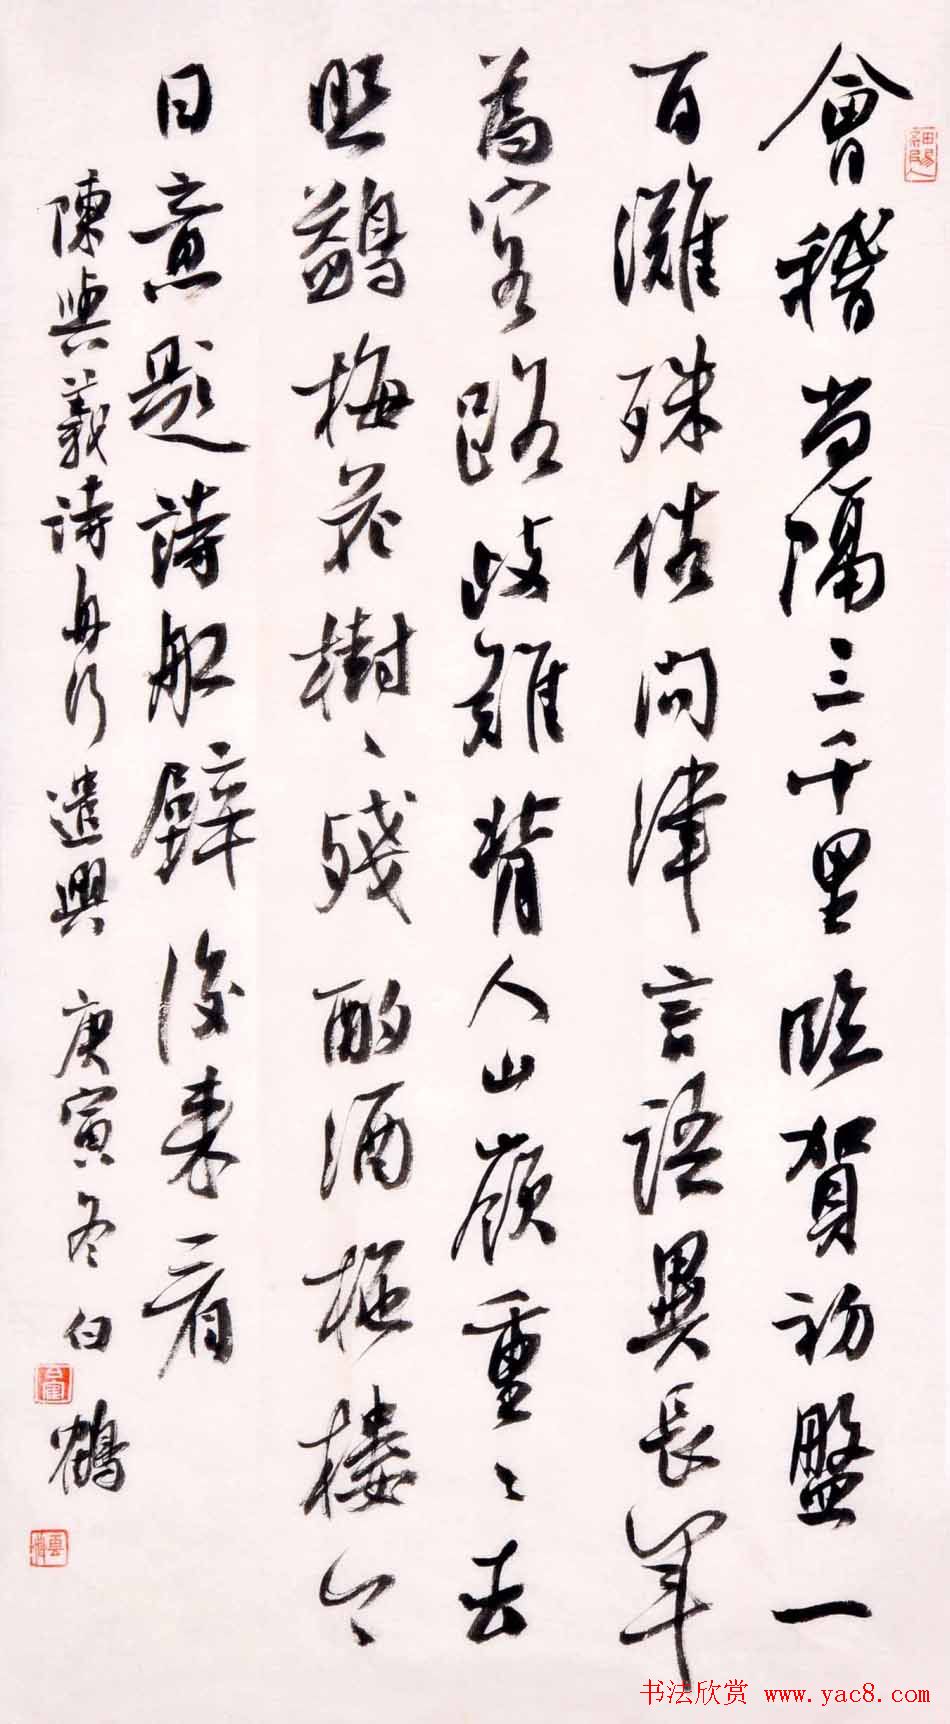 會稽尚隔三千里臨賀初盤一
百灘殊俗問津言語異長年
為客路歧難背人山嶺重〻去
照鷁梅花樹〻殘酌酒柂樓今
日意題詩船壁後來看
陳與義詩舟行遣興 庚寅冬 白鶴
书法欣赏 www.yac8.com